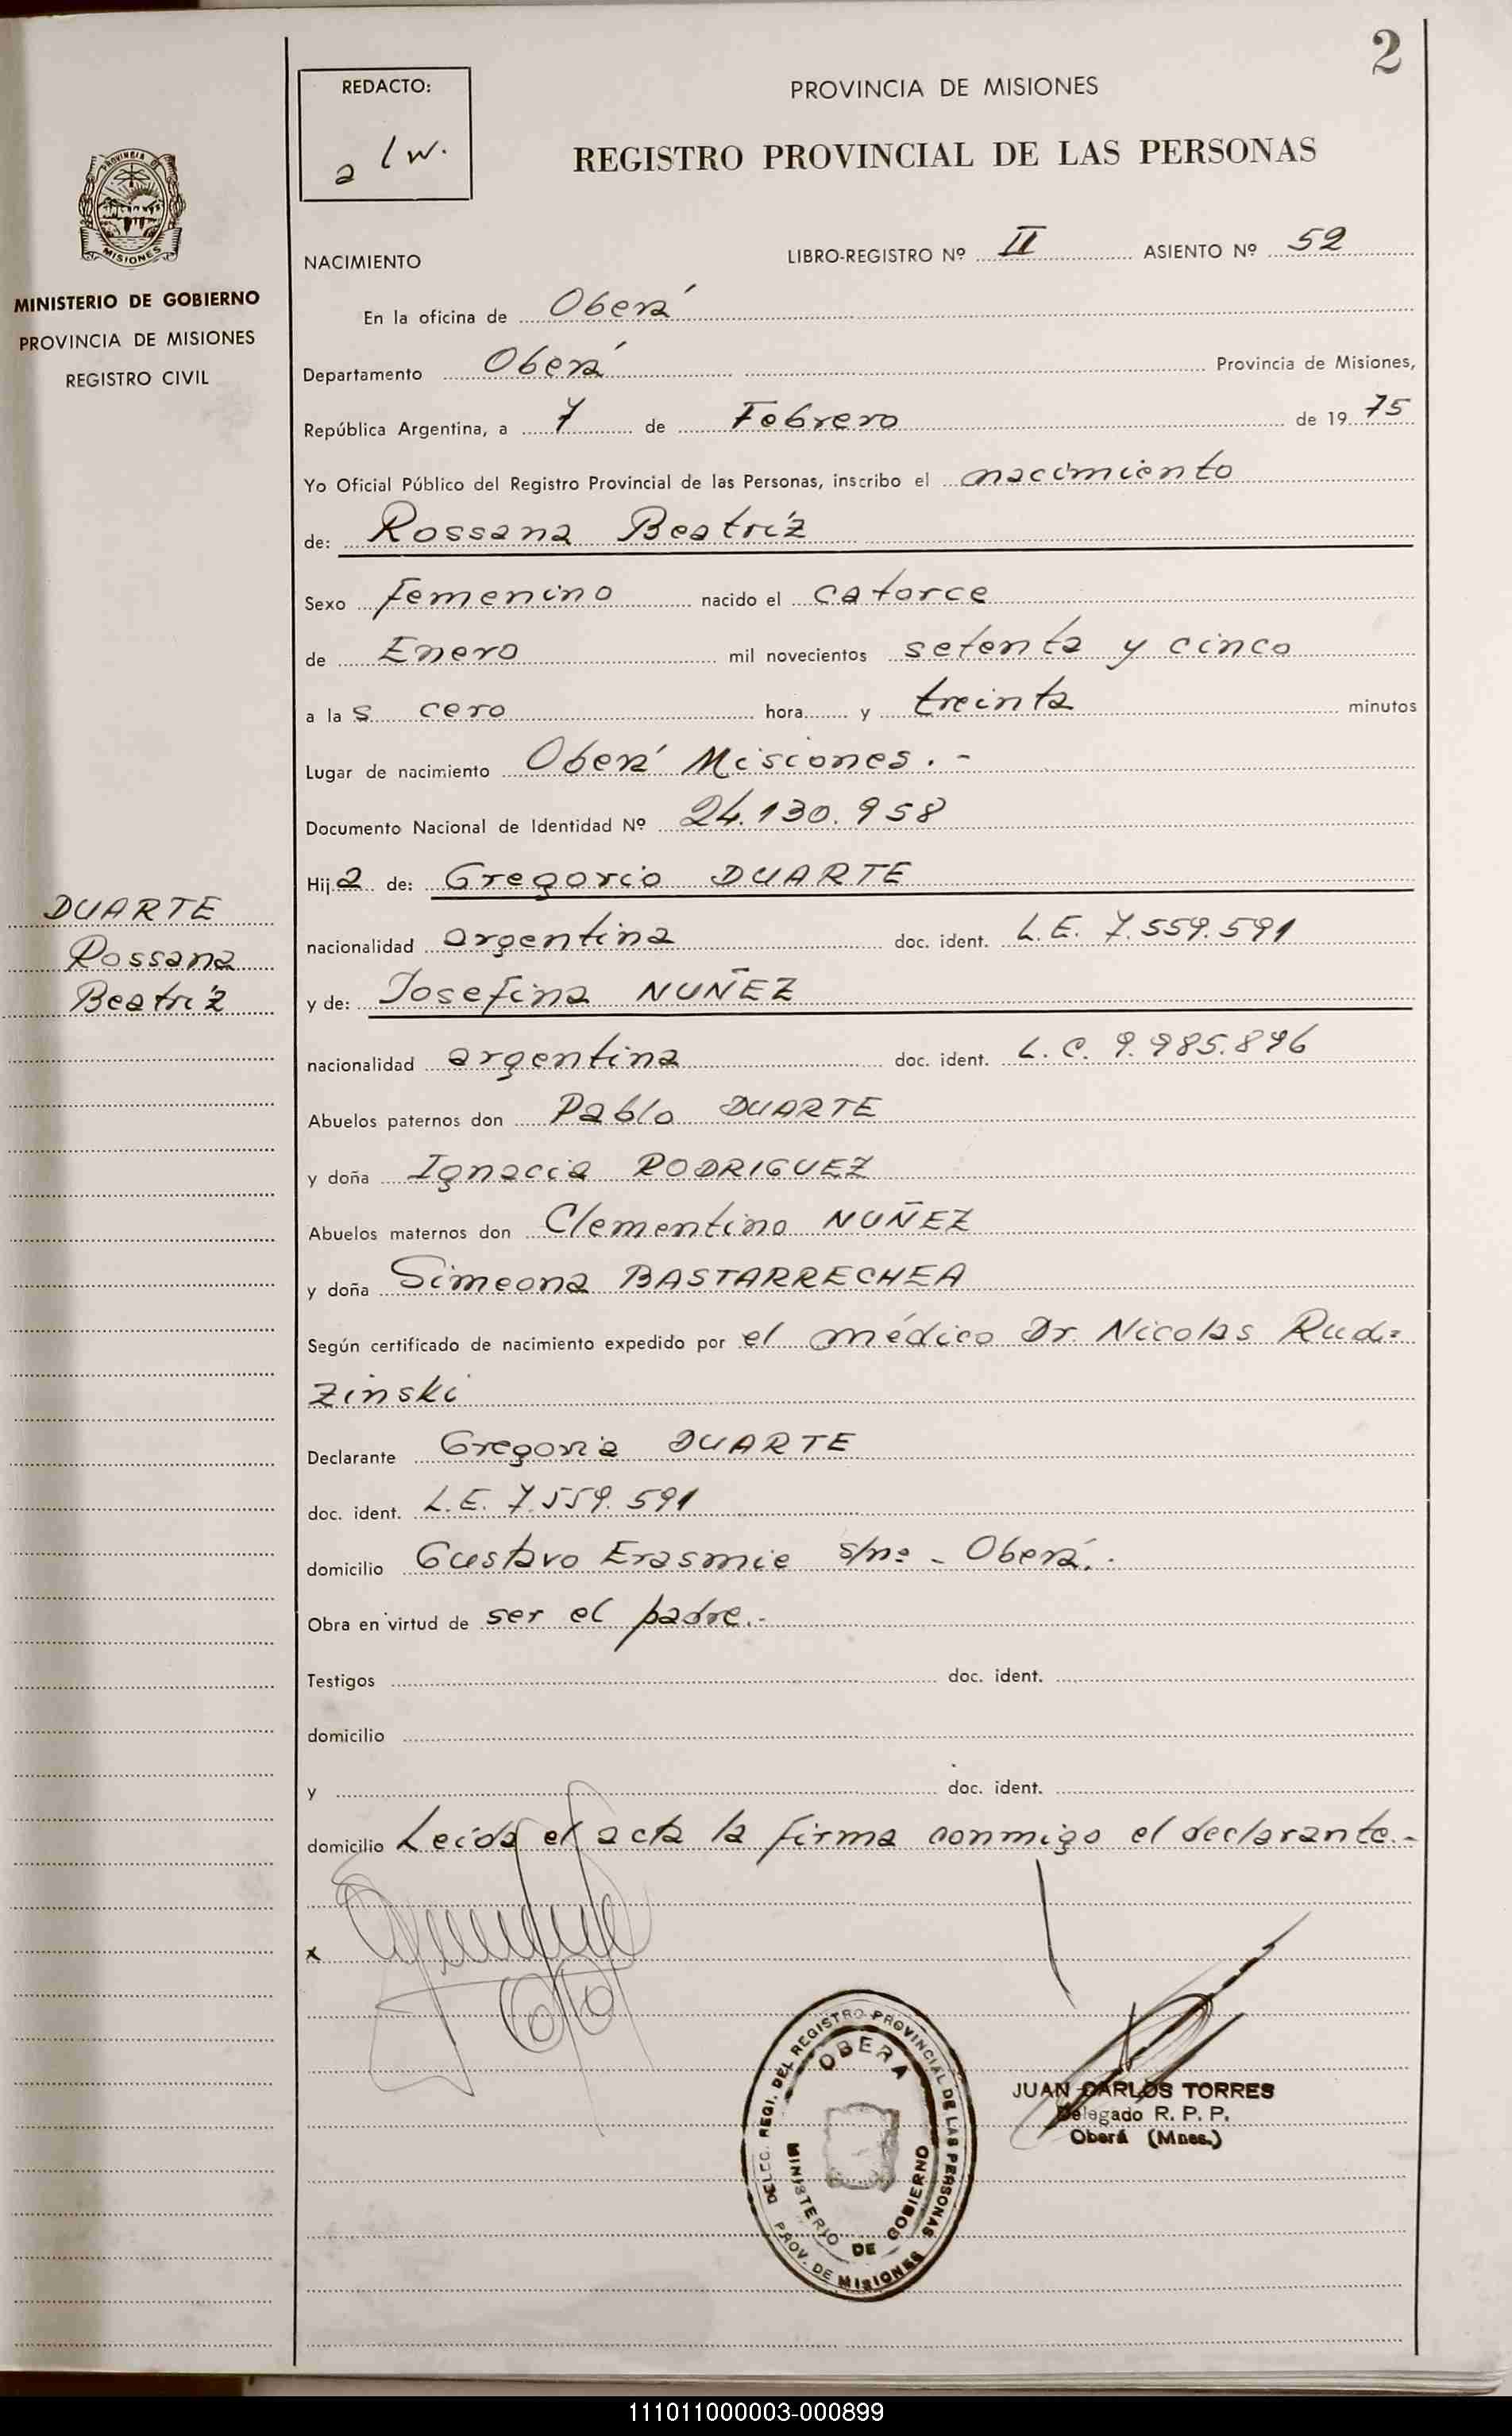 2
REDACTO:
a lw.
PROVINCIA DE MISIONES
REGISTRO PROVINCIAL DE LAS PERSONAS
PROVINCIA DE
MISIONES
MINISTERIO DE GOBIERNO
PROVINCIA DE MISIONES
REGISTRO CIVIL
NACIMIENTO LIBRO-REGISTRO Nº II ASIENTO Nº 52
En la oficina de Oberá
Departamento Oberá Provincia de Misiones,
República Argentina, a 7 de Febrero de 19 75
Yo Oficial Público del Registro Provincial de las Personas, inscribo el nacimiento
de: Rossana Beatríz
Sexo femenino nacido el catorce
de Enero mil novecientos setenta y cinco
a la s cero hora y treinta minutos
Lugar de nacimiento Oberá Misiones.-
Documento Nacional de Identidad Nº 24.130.958
Hij a de: Gregorio DUARTE
DUARTE
Rossana
Beatríz
nacionalidad argentina doc. ident. L.E. 7.559.591
y de: Josefina NUÑEZ
nacionalidad argentina doc. ident. L.C. 9.985.896
Abuelos paternos don Pablo DUARTE
y doña Ignacia RODRIGUEZ
Abuelos maternos don Clementino NUÑEZ
y doña Simeona BASTARRECHEA
Según certificado de nacimiento expedido por el médico Dr. Nicolas Rud=
zinski
Declarante Gregorio DUARTE
doc. ident. L.E. 7.559.591
domicilio Gustavo Erasmie s/nº - Oberá.-
Obra en virtud de ser el padre.-
Testigos doc. ident.
domicilio
y doc. ident.
domicilio Leída el acta la firma conmigo el declarante.-
x
DELEG. REGI. DEL REGISTRO PROVINCIAL DE LAS PERSONAS
OBERA
MINISTERIO DE GOBIERNO
PROV. DE MISIONES
JUAN CARLOS TORRES
Delegado R. P. P.
Oberá (Mnes.)
111011000003-000899